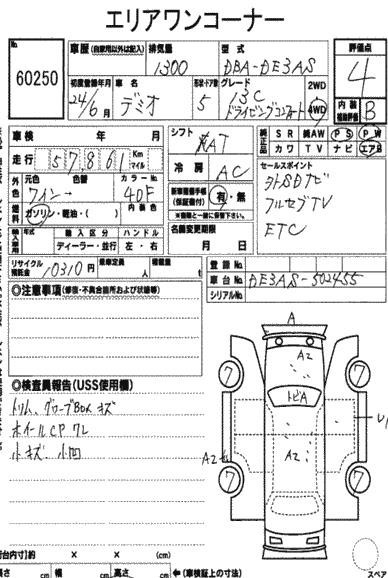 エリアワンコーナー
No.
60250
車歴(自家用以外は記入)
排気量
1300
型式
DBA-DE3AS
評価点
4
初度登録年月
24/6月
車名
デミオ
形状・ドア数
5
グレード
13C
ドライビングコンフォート
2WD
4WD
内装
補助評価
B
車検 年 月
シフト
AT
純正品
SR 純AW PS PW
カワ TV ナビ エアB
走行
57,861
Km
マイル
冷房
AC
セールスポイント
外SDナビ
フルセグTV
ETC
外色
元色 色替
ワイン→
カラーNo.
40F
新車整備手帳
(保証書付)
有・無
※車両と一緒に保管して下さい
燃料
ガソリン・軽油・( )
内装色
輸入車用
年式
輸入区分
ハンドル
ディーラー・並行
左・右
名義変更期限
月 日
リサイクル
預託金
10310円
乗車定員
人
積載量
t
登録No.
車台No.
DE3AS-502455
シリアルNo.
◎注意事項(修復・不具合箇所および状態等)
◎検査員報告(USS使用欄)
トリム、グローブBOXキズ
ホイールCPワレ
小キズ、小凹
A
A2
7
7
トビA
U1
A2
A2
7
7
荷台内寸)約 × × (cm)
長さ cm 幅 cm 高さ cm ←(車検証上の寸法)
スペア